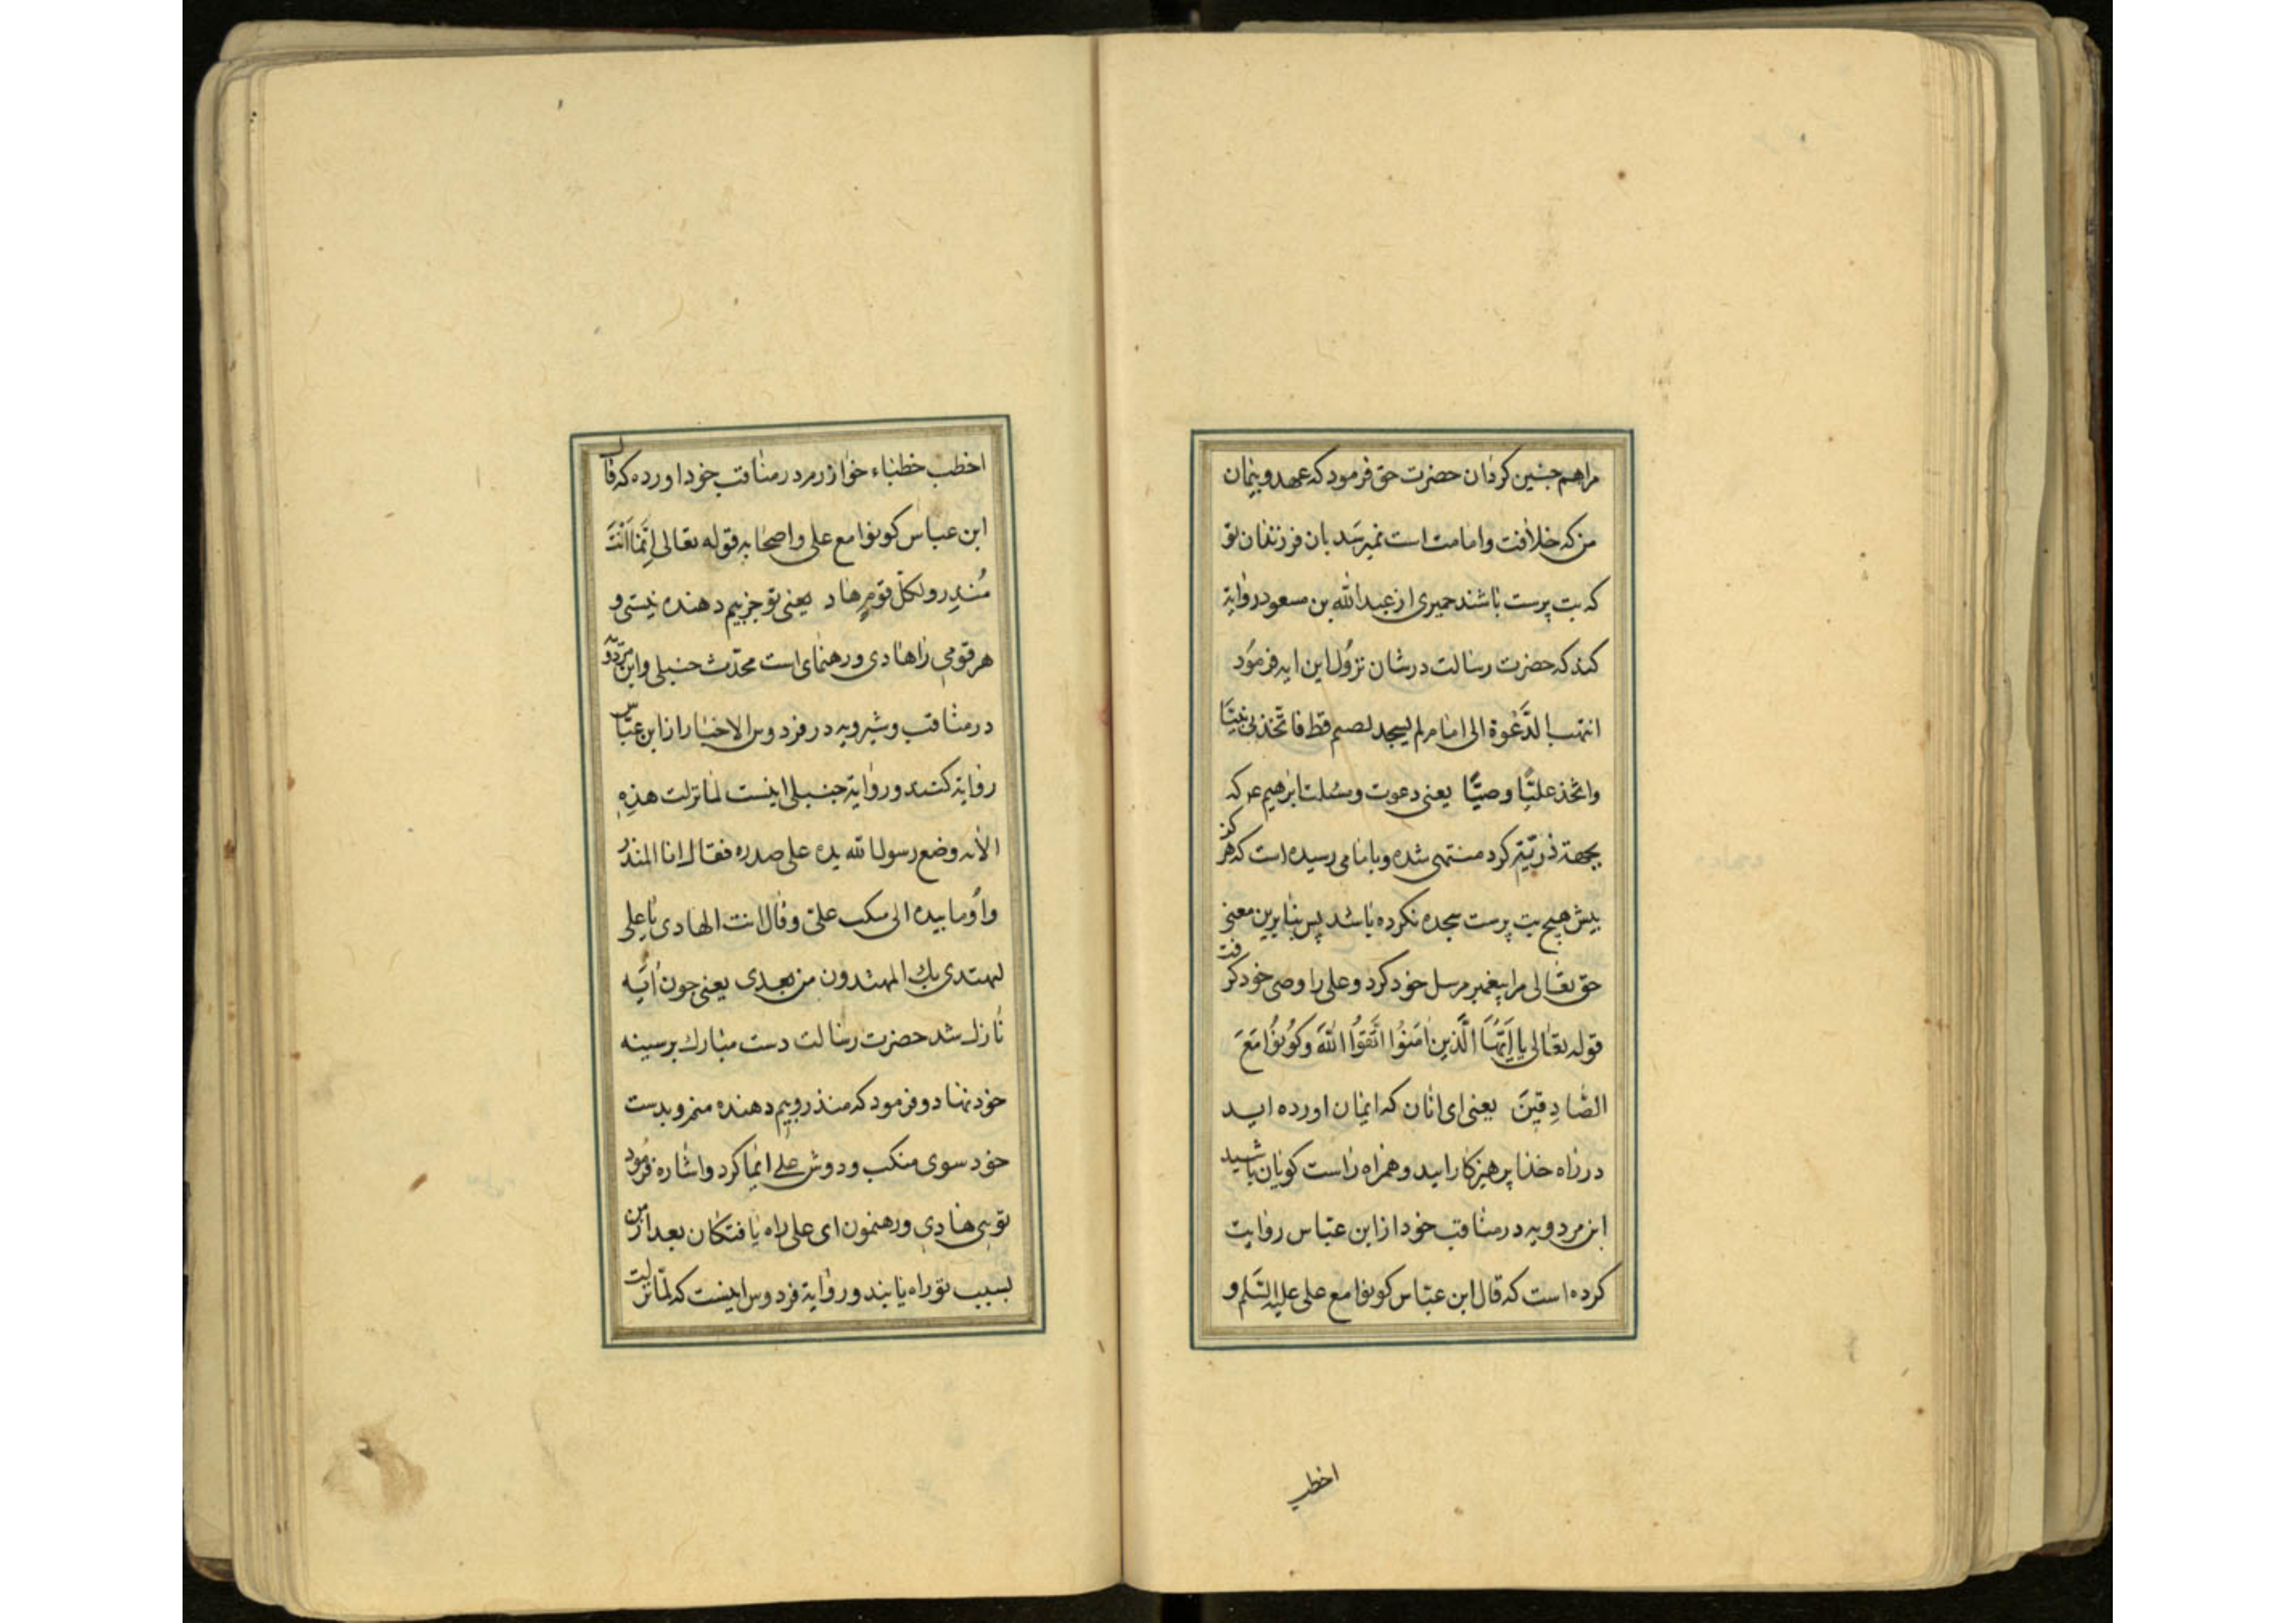 مرا هم چنین کردان حضرت حق فرمود که عهد و پیمان
من که خلافت و امامت است نمیرسد بان فرزندان تو
که بت پرست باشند حمیری از عبدالله بن مسعود روایة
کند که حضرت رسالت در شان نزول این ایه فرمود
انتهت الدَّعْوة الی امام لم یسجد لصنم قط فاتّخذنی نبیًّا
واتّخذ علیًّا وصیًّا یعنی دعوت وسئلت ابرهیم ع که
بجهة ذریّته کرد منتهی شده و بامامی رسیده است که هرکز
پیش هیچ بت پرست سجده نکرده باشد پس بنابرین معنی
حق تعالی مرا پیغمبر مرسل خود کرد و علی را وصی خود کرفت
قوله تعالی یا اَیُّهَا الَّذین اٰمَنُوا اتَّقوُا اللهَ وَکُونُوا مَعَ
الصّادِقینَ یعنی ای انان که ایمان اورده اید
در راه خدا پرهیزکار اید و همراه راست کویان باشید
ابن مردویه در مناقب خود از ابن عبّاس روایت
کرده است که قال ابن عبّاس کونوا مع علی علیه السَّلم و
اخطب
اخطب خطباء خوازرم در مناقب خود اورده که قال
ابن عباس کونوا مع علی واصحابه قوله تعالی اِنَّمَا اَنْتَ
مُنذِر ولکلّ قومٍ هاد یعنی تو جز بیم دهنده نیستی و
هر قومی را هادی و رهنمای است محدّث حنبلی وابن مردویه
در مناقب و شیرویه در فردوس الاخبار از ابن عبّاس
روایة کنند و روایة حنبلی اینست لمّا نزلت هذِهِ
الآیه وضع رسول الله یده علی صدره فقال انا المنذرُ
واَوما بیده الی منکب علیّ وقال انت الهادی یا علی
لیهتدی بك المهتدون من بعدی یعنی چون اُیَه
نازل شد حضرت رسالت دست مبارك بر سینه
خود نهاد و فرمود که منذر و بیم دهنده منم و بدست
خود سوی منکب و دوش علی ایما کرد و اشاره فرمود
تویی هادی و رهنمون ای علی راه یافتکان بعد از من
بسبب تو راه یابند و روایة فردوس اینست که لمّا نزلت